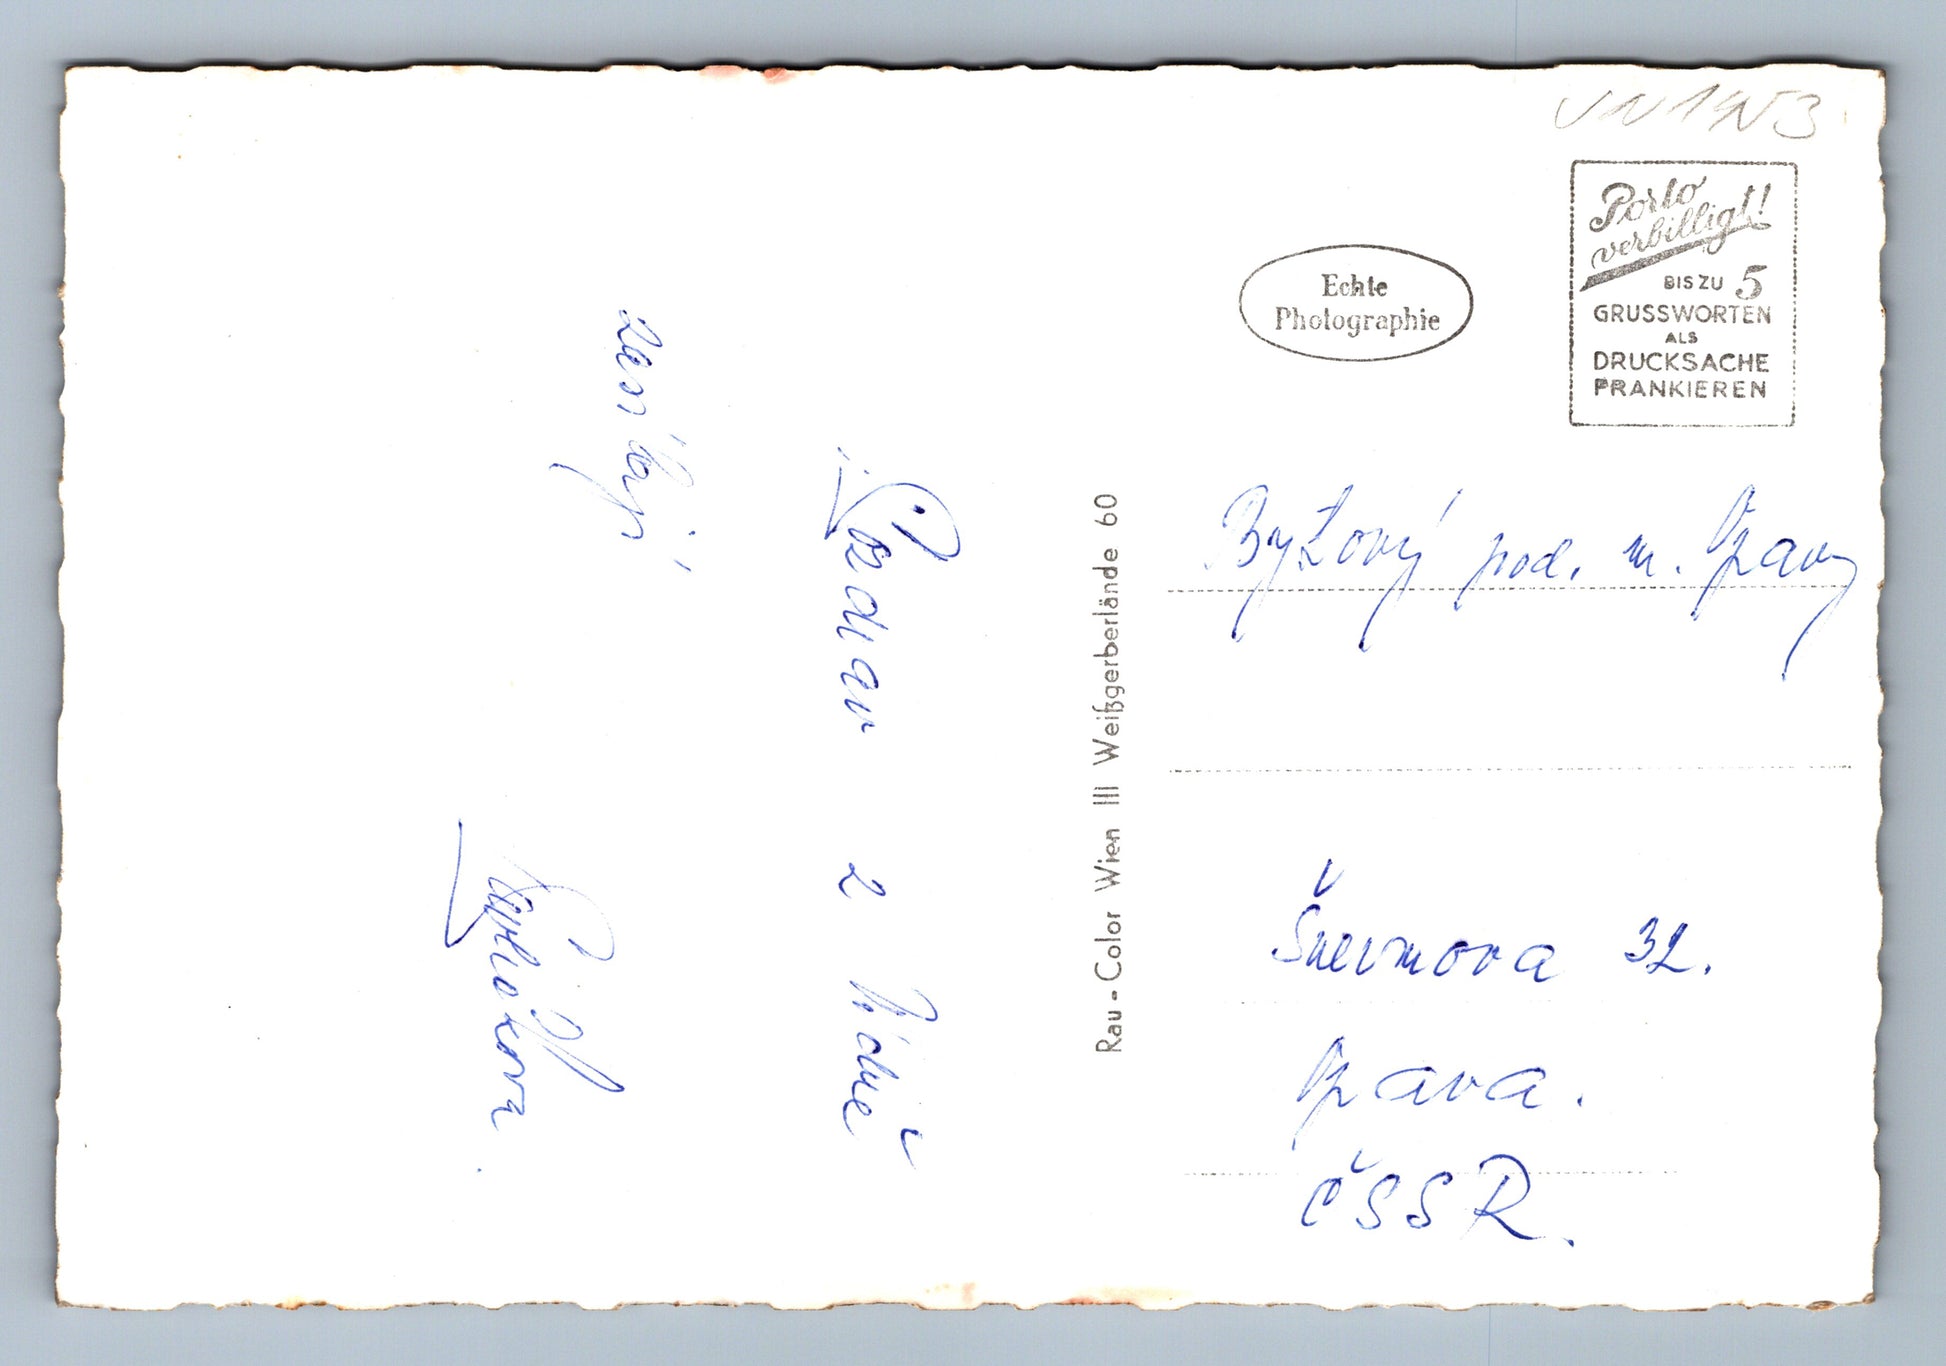 Pozdrav z Vídně
zasílají
Pavličkova
Porto
verbilligt!
BIS ZU 5
GRUSSWORTEN
ALS
DRUCKSACHE
FRANKIEREN
Echte
Photographie
Rau-Color Wien III Weißgerberlände 60
Bytový pod. m. Opavy
Šnermova 32.
Opava.
ČSSR.